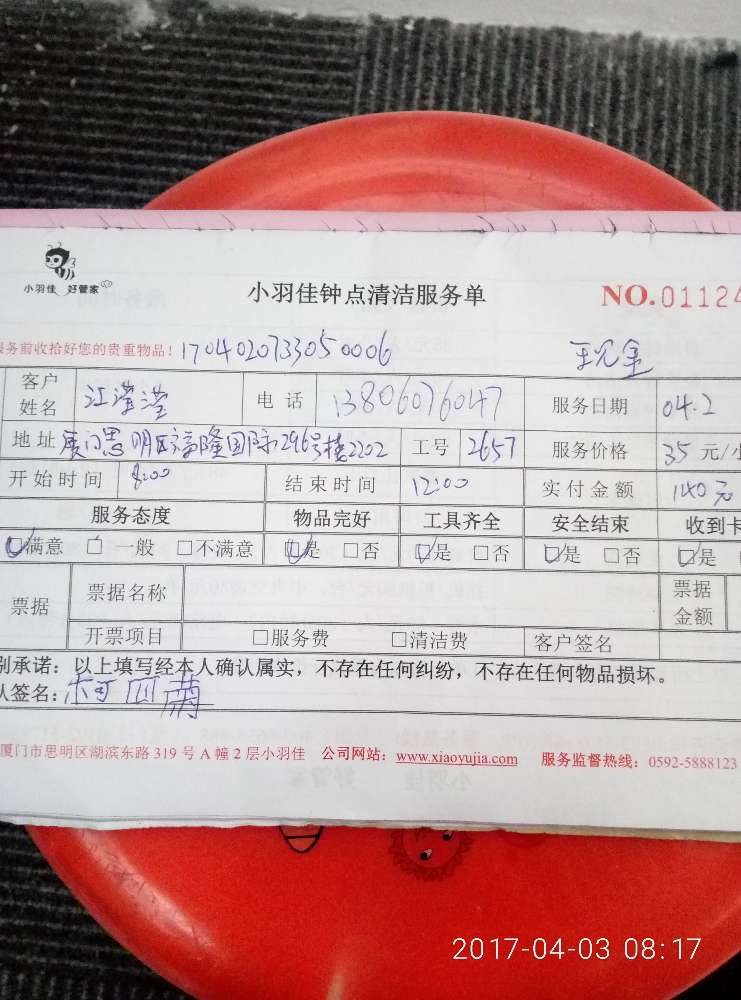 小羽佳 好管家
小羽佳钟点清洁服务单
NO.01124
务前收拾好您的贵重物品！ 170402073305 0006
客户姓名 江滢滢 电话 13806076047 服务日期 04.2
地址 厦门思明区富隆国际296号楼2202 工号 2657 服务价格 35 元/小
开始时间 8:00 结束时间 12:00 实付金额 140元
服务态度 物品完好 工具齐全 安全结束 收到卡
满意 一般 不满意 是 否 是 否 是 否 是
票据 票据名称 票据金额
开票项目 服务费 清洁费 客户签名
别承诺：以上填写经本人确认属实，不存在任何纠纷，不存在任何物品损坏。
人签名：
厦门市思明区湖滨东路 319 号 A 幢 2 层小羽佳 公司网站：www.xiaoyujia.com 服务监督热线：0592-5888123
2017-04-03 08:17